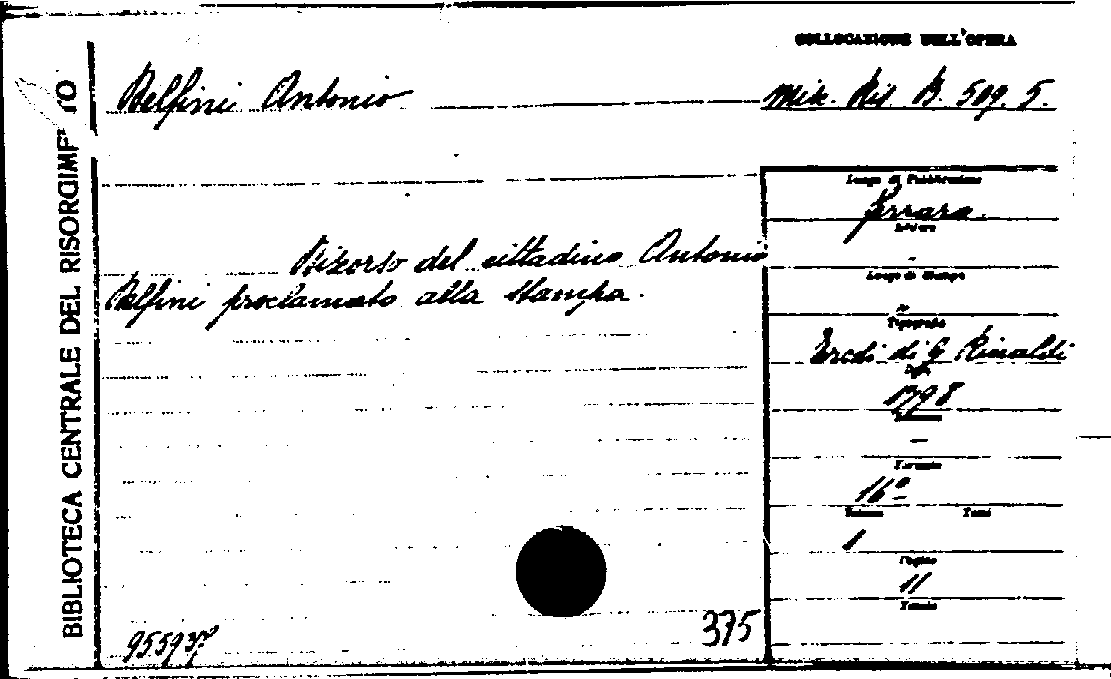 COLLOCAZIONE DELL'OPERA
Delfini Antonio
Misc. Ris B. 509. 5.
BIBLIOTECA CENTRALE DEL RISORGIME TO
Luogo di Pubblicazione
Ferrara.
Editore
-
Luogo di Stampa
Discorso del cittadino Antonio
Delfini proclamato alla stampa.
Tipografia
Eredi di G Rinaldi
Data
1798
—
Formato
16°
Volume Tomi
1
Pagine
11
375